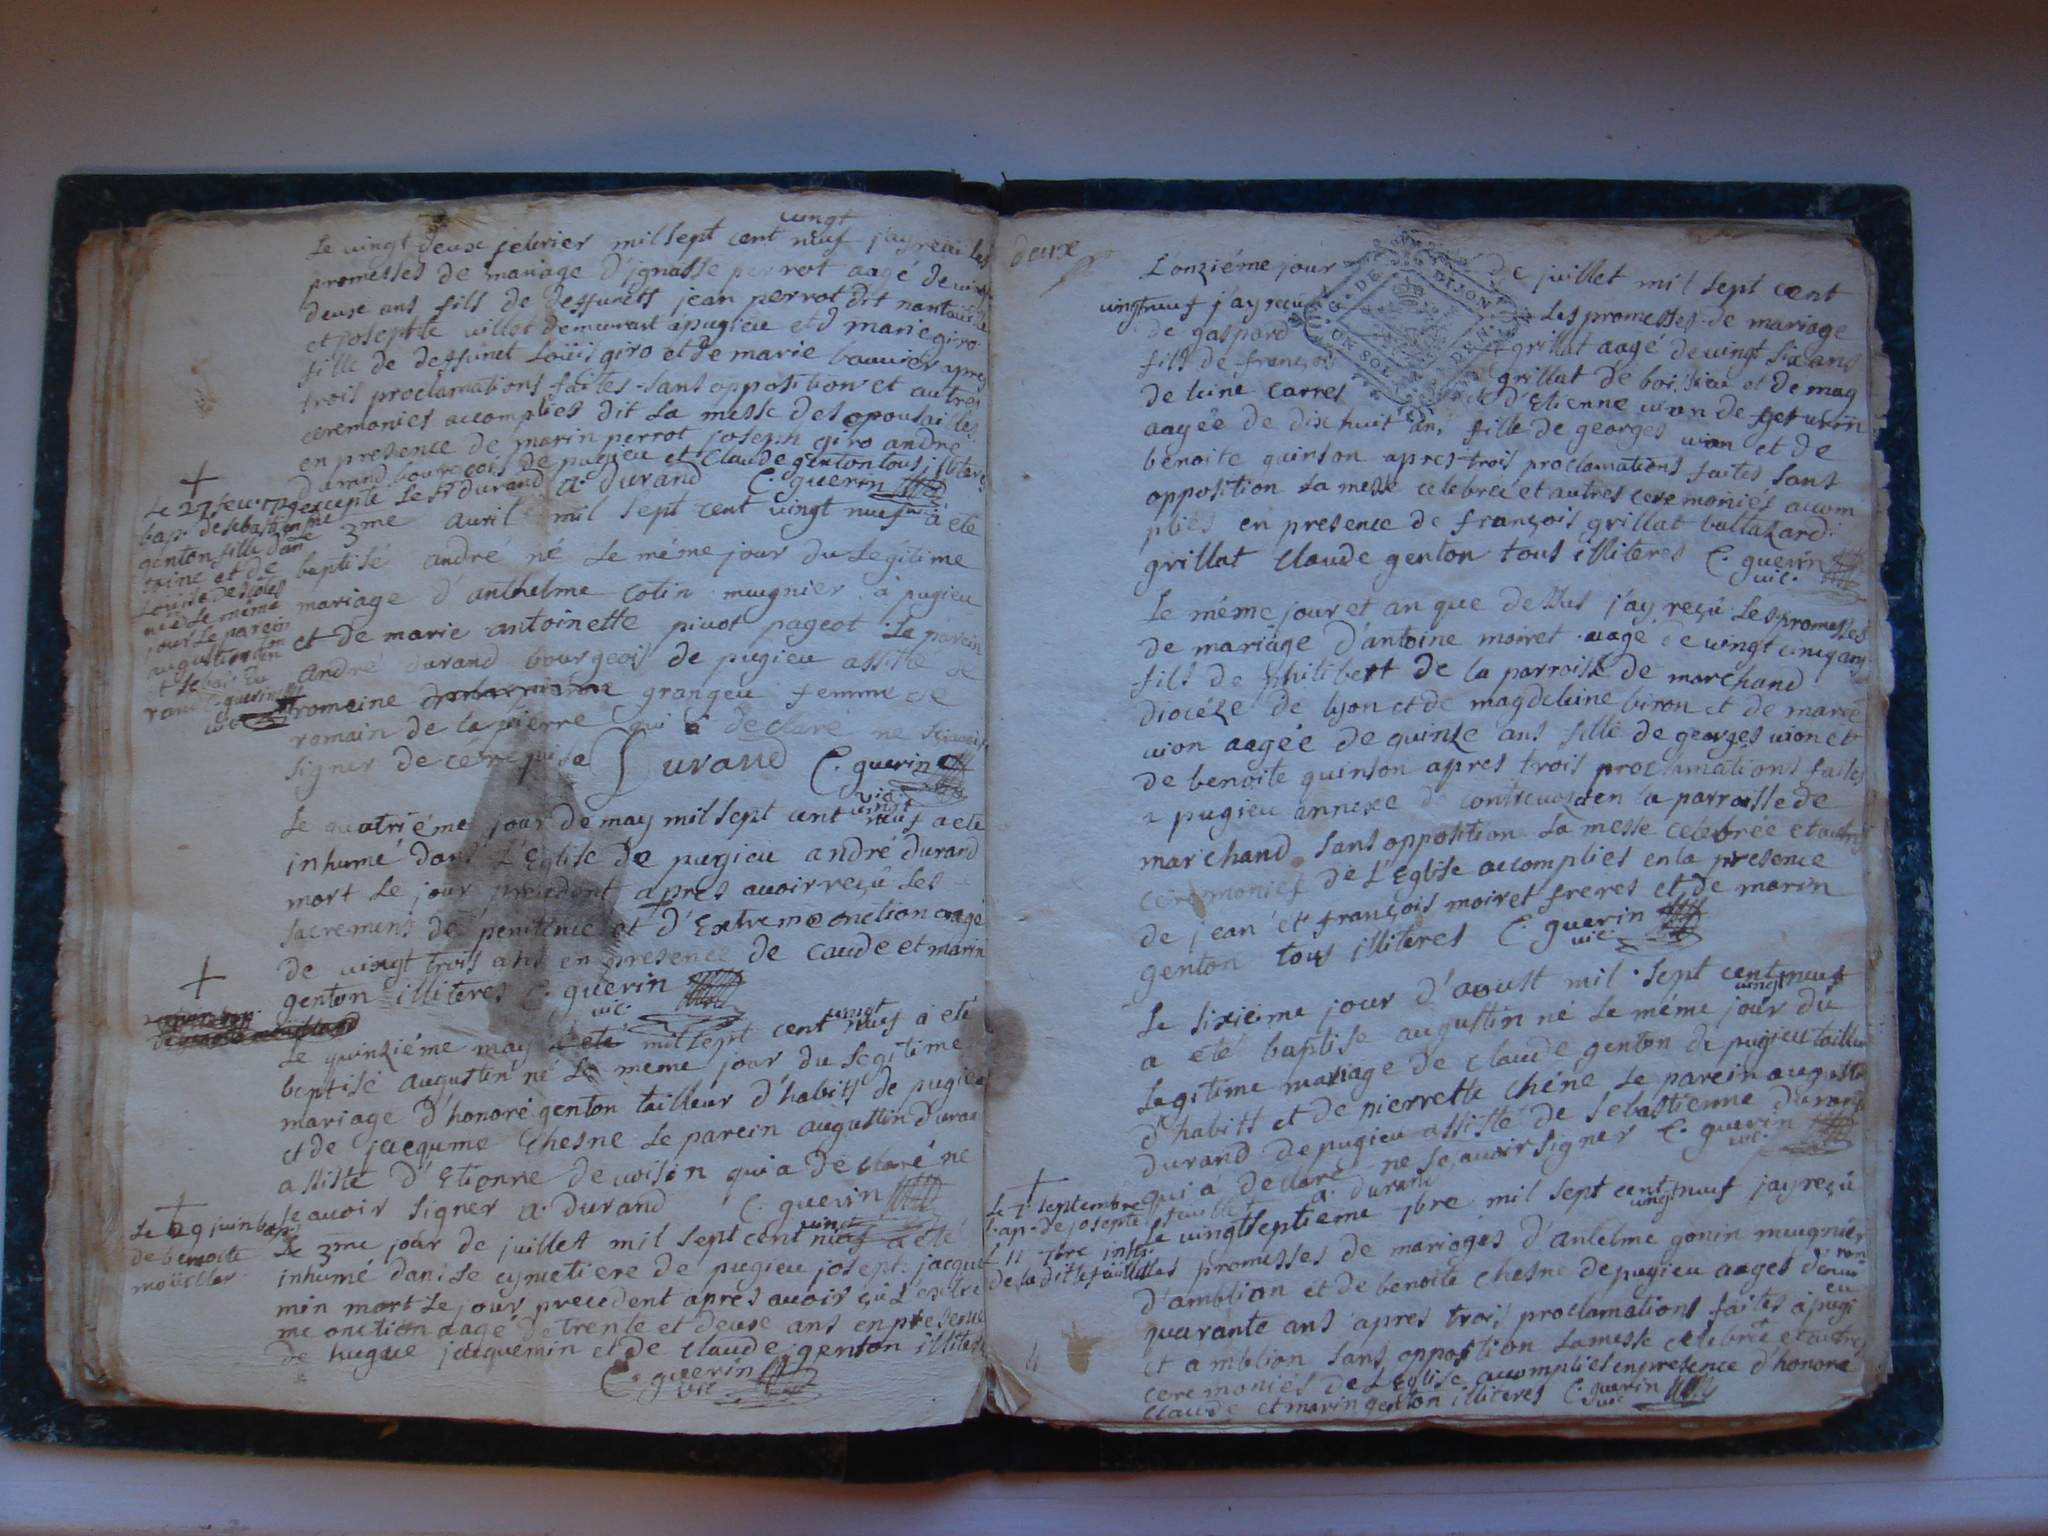 Le vingt deuxe febvrier mil sept cent vingt neuf j'ay reçu les
promesses de mariage d'ignasse perrot aagé de vingt
deuxe ans fils de deffuncts jean perrot dit nantua
et josephte villet demeurant a pugieu et d marie giro
fille de deffunct Loüis giro et de marie bouvier apres
trois proclamations faites sans opposition et autres
ceremonies accomplies dit la messe des epousailles
en presence de marin perrot joseph giro andré
durand bourgeois de pugieu et Claude genton tous illiteres
excepté le Sr durand A. durand C. guerin
Le 27 feuv. 1729
bap. de sebastienne
genton fille d'an
toine et de
Loüise
née le même
jour Le parein
augustin
et sebast. du
rand C. guerin
vic
3me auril mil sept cent vingt neuf à été
baptisé andré né Le même jour du Legitime
mariage d'anthelme Cotin mugnier à pugieu
et de marie antoinette pivot pageot Le parein
André durand bourgeois de pugieu assisté de
romaine grangeu femme de
romain de la pierre qui a declaré ne sçavoir
signer de ce requise Durand C. guerin
vic
Le quatriéme jour de may mil sept cent vingt neuf a eté
inhumé dans L'Eglise de pugieu andré durand
mort Le jour precedent apres avoir reçû Les
sacremens de penitence et d'Extreme onction aagé
de vingt trois ans en presence de Caude et marin
genton illiteres C. guerin
vic.
Le quinziéme may a eté mil sept cent vingt neuf à eté
baptisé augustin né Le meme jour du Legitime
mariage d'honoré genton tailleur d'habits de pugieu
et de jacqume Chesne Le parein augustin durand
assisté d'Etienne de voisin qui a declaré ne
sçavoir signer A. durand C. guerin
Le 29 juin bap.
de benoite
moüiller
Le 3me jour de juillet mil sept cent vingt neuf a été
inhumé dans Le cymetiere de pugieu joseph jacque
min mort Le jour precedent apres avoir reçû L'extre
me onction aagé de trente et deuxe ans en presence
de hugue jacquemin et de Claude genton illiteres
C. guerin
vic
deuxe
L'onziéme jour de juillet mil sept cent
vingt neuf j'ay reçu Les promesses de mariage
de gaspard grillat aagé de vingt six ans
fils de françois grillat de boissieu et de mag
de leine Carres et d'Etienne uion de
aagée de dixhuit ans fille de georges uion et de
benoite quinson apres trois proclamations faites sans
opposition La messe celebrée et autres ceremoniés accom
pliés en presence de françois grillat baltazard
grillat Claude genton tous illiteres C. guerin
vic.
Le méme jour et an que dessus j'ay reçû Les promesses
de mariage d'antoine moiret aagé de vingt cinq ans
fils de philibert de la parroisse de marchand
diocéze de lyon et de magdeleine biron et de marie
uion aagée de quinze ans fille de georges uion et
de benoite quinson apres trois proclamations faites
a pugieu annexe de contrevoz et en la parroisse de
marchand sans opposition La messe celebrée et autres
ceremonies de L'Eglise accomplies en la presence
de jean et françois moiret freres et de marin
genton tous illiteres C. guerin
vic.
Le sixiéme jour d'aoust mil sept cent vingt neuf
a eté baptisé augustin né Le méme jour du
Legitime mariage de Claude genton de pugieu tailleur
d'habits et de pierrette Chéne Le parein augustin
durand de pugieu assisté de sebastienne durand
qui à declaré ne sçavoir signer C. guerin
vic.
A. durand
Le 7 septembre
bap. de josephte
Le 11 7bre inh.
de la dite
Le vingtseptieme 7bre mil sept cent vingt neuf jay reçû
Les promesses de mariages d'anselme gonin mugnier
d'amblion et de benoite Chesne de pugieu aages d'environ
quarante ans apres trois proclamations faites à pugieu
et amblion sans opposition La messe celebrée et autres
ceremoniés de L'Eglise accomplies en presence d'honoré
Claude et marin genton illiteres C. guerin
vic